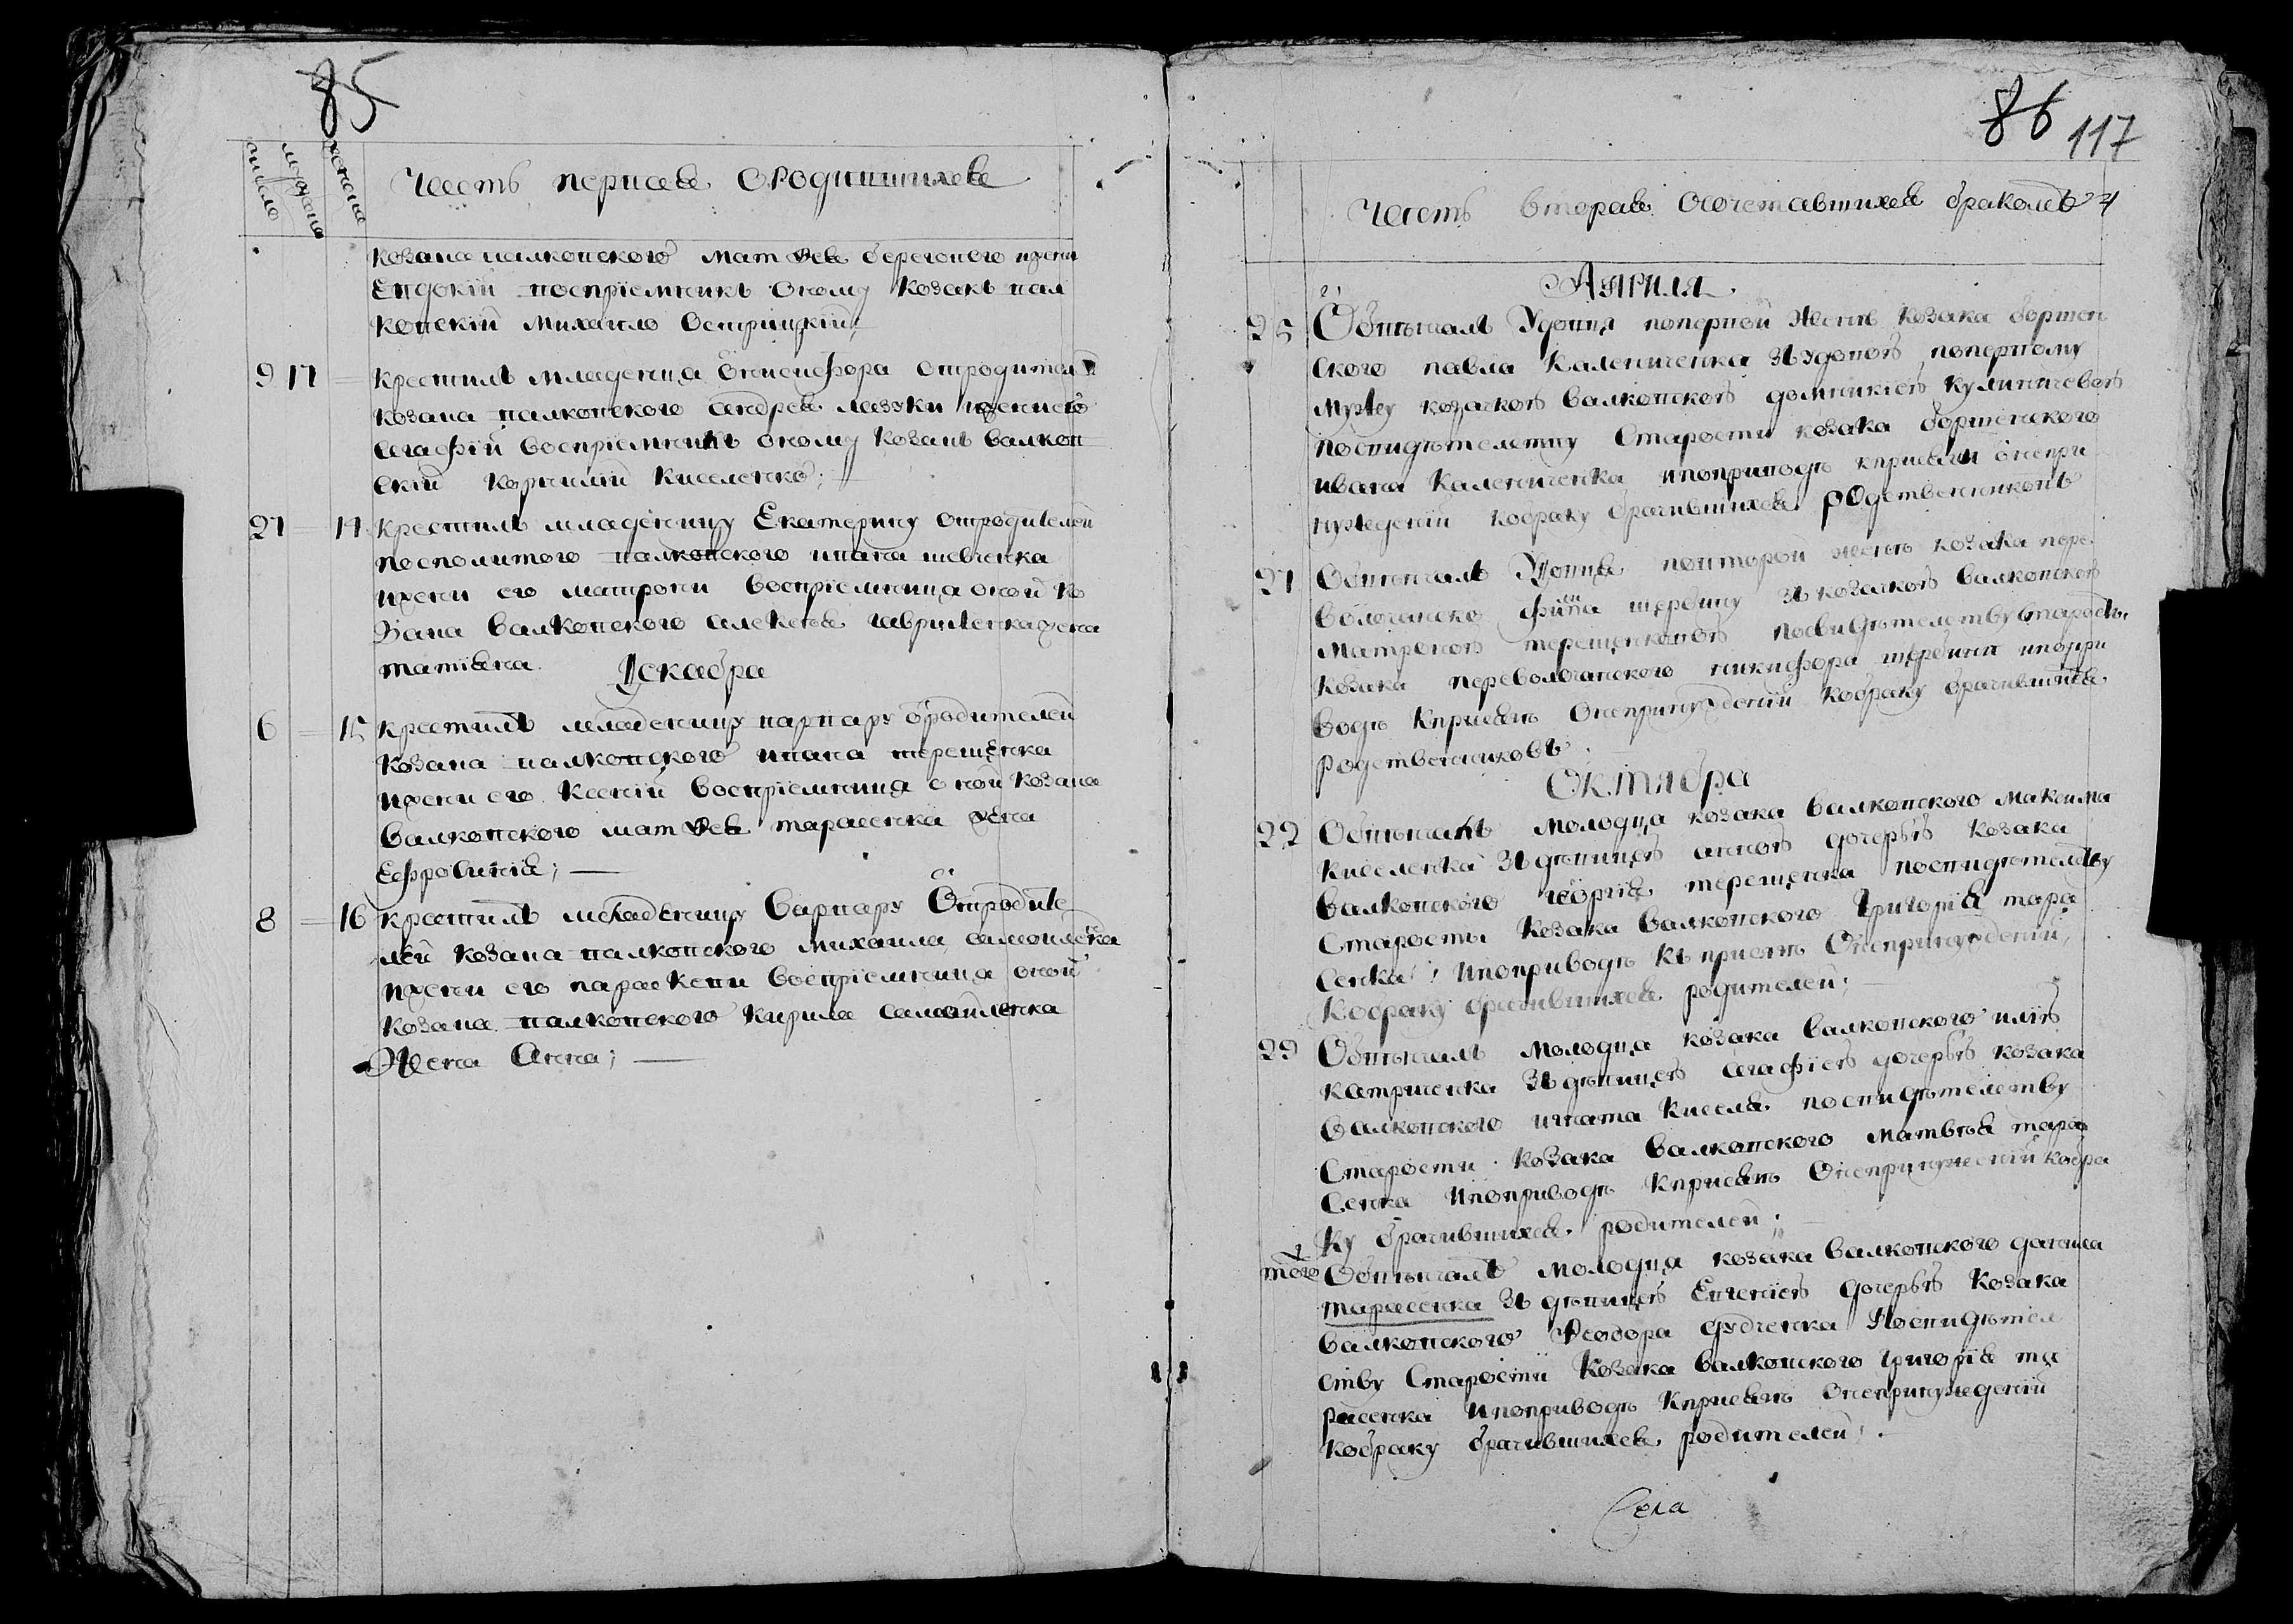 85
число
мужска
женска
Часть первая о Родившихся
козака валковского Матѳея берегового и жени
Евдокіи восприемникъ оному козакъ вал
ковскій Михаило Острицкій;
9 17 Крестилъ младенца Онисифора отродителей
козака валковского андрея лазки и жени его
агафіи восприемникъ оному козакъ валков
скій корнилій Киселенко;
21 14 Крестилъ младеницу Екатерину отродителей
посполитого валковского ивана шевченка
и жени его матрони восприемница оной ко
зака валковского алексѣя гавриленка жена
татіяна.
Декабря
6 15 крестилъ младеницу варвару ѿродителей
козака валковского ивана терещенка
и жени его Ксеніи восприемница оной козака
валковского матѳея тарасенка жена
Ефросинія;
8 16 крестилъ младеницу варвару Ѿродите
лей козака валковского михаила самойленка
и жени его параскеви восприемница оной
козака валковского кирила самойленка
Жена Анна;
86 117
Часть вторая осочетавшихся бракомъ
Априля
25 Обвѣнчалъ Удовца попервой женѣ козака боршен
ского павла Калениченка зъ удовою попервому
мужу козачкою валковскою домникіею кулиничевою
посвидѣтелству старости козака боршенского
ивана Калениченка и по приводѣ к присязѣ о непри
нужденіи кобраку брачившихся родственниковъ
27 Обвѣнчалъ Удовца повторой женѣ козака пере
волочанско филипа щербину зъ козачкою валковскою
Матреною терещенковою посвидѣтелству старости
козака переволочанского никифора щербини и по при
водѣ к присязѣ о непринужденіи кобраку брачившихся
родственниковъ.
Октября
22 Обвѣнчалъ молодца козака валковского максима
киселенка зъ дѣвицею анною дочерью козака
валковского георгія терещенка посвидѣтелству
старости козака валковского григорія тара
сенка и по приводѣ къ присязѣ о непринужденіи
кобраку брачившихся родителей;
29 Обвѣнчалъ молодца козака валковского илію
катриченка зъ дѣвицею агафіею дочерью козака
валковского игната киселя посвидѣтелству
старости козака валковского матвѣя тара
сенка и по приводѣ к присязѣ о непринужденіи кобра
ку брачившихся родителей;
того Обвѣнчалъ молодца козака валковского данила
тарасенка зъ дѣвицею Евгеніею дочерью козака
валковского Ѳеодора дудченка посвидѣтел
ству старости козака валковского григорія та
расенка и по приводѣ к присязѣ о непринужденіи
кобраку брачившихся родителей.
Села